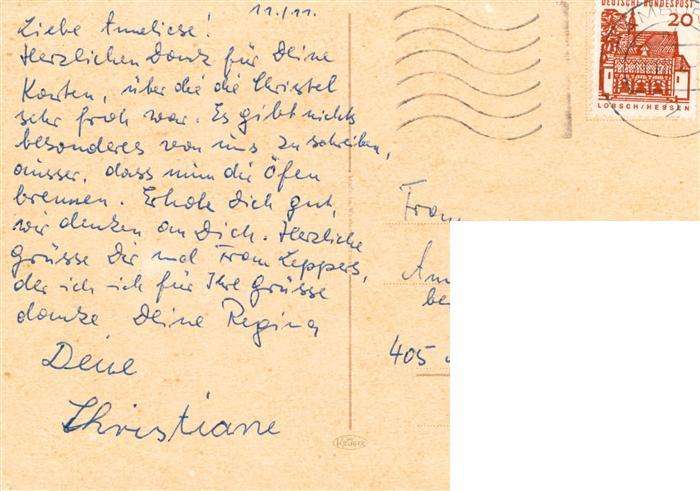 11./11.
Liebe Anneliese!
Herzlichen Dank für Deine
Karten, über die die Christel
sehr froh war. Es gibt nichts
besonderes von uns zu schreiben,
ausser, dass nun die Öfen
brennen. Erhole Dich gut,
wir denken an Dich. Herzliche
grüsse Dir und Frau Leppers,
der ich ich für Ihre Grüsse
danke Deine Regina
Deine
Christiane
DEUTSCHE BUNDESPOST
20
LORSCH/HESSEN
Frau
405